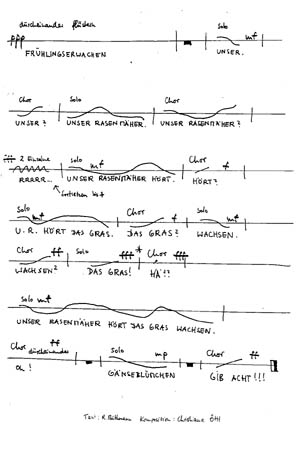 durcheinander flüstern Solo
ppp mf
FRÜHLINGSERWACHEN UNSER.
Chor Solo Chor
UNSER? UNSER RASENMÄHER. UNSER RASENMÄHER?
2 Einzelne Solo mf Chor f
RRRRR... UNSER RASENMÄHER HÖRT. HÖRT?
fortsetzen bis *
Solo mf Chor f Solo mf
U. R. HÖRT DAS GRAS. DAS GRAS? WACHSEN.
Chor ff Solo fff * Chor fff
WACHSEN? DAS GRAS! HÄ!?
Solo mf
UNSER RASENMÄHER HÖRT DAS GRAS WACHSEN.
Chor ff durcheinander Solo mp Chor ff
GÄNSEBLÜMCHEN GIB ACHT!!!
Text: R. Komposition: